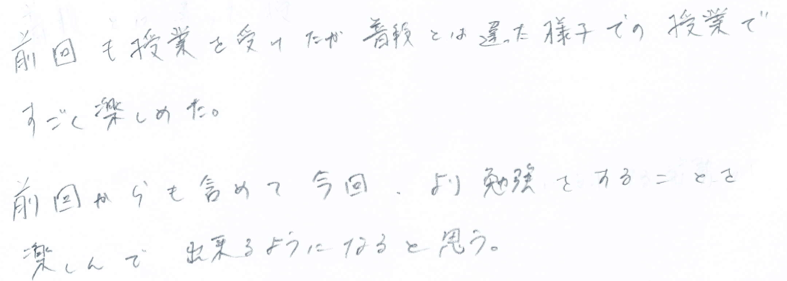 前回も授業を受けたが普段とは違った様子での授業で
すごく楽しめた。
前回からも含めて今回、より勉強をすることを
楽しんで出来るようになると思う。